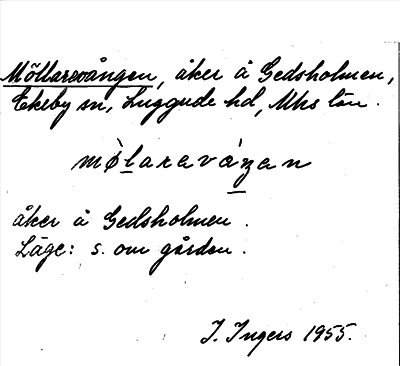 Möllarevången, åker å Gedsholmen,
Ekeby sn, Luggude hd, Mhs län.
mø̀laraváŋen
åker å Gedsholmen.
Läge: s. om gården.
I. Ingers 1955.